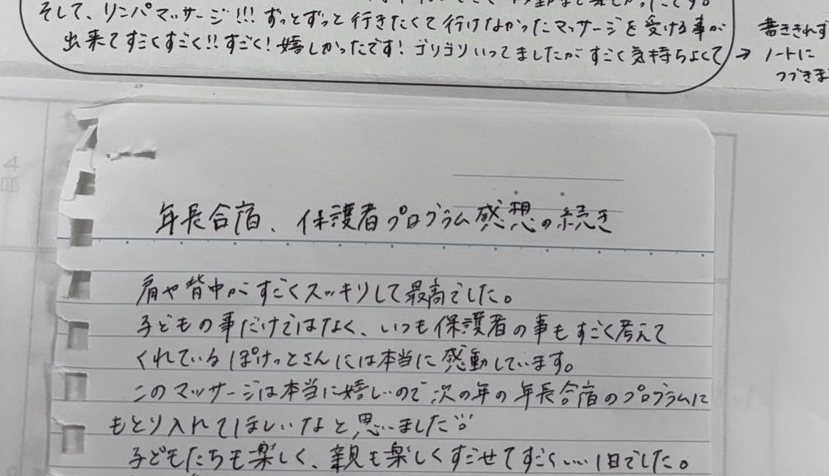 そして、リンパマッサージ!!! ずっとずっと行きたくて行けなかったマッサージを受ける事が
出来てすごくすごく!! すごく! 嬉しかったです! ゴリゴリいってましたがすごく気持ちよくて →
書ききれず
ノートに
つづきま
年長合宿、保護者プログラム感想の続き
肩や背中がすごくスッキリして最高でした。
子どもの事だけではなく、いつも保護者の事もすごく考えて
くれているぽけっとさんには本当に感動しています。
このマッサージは本当に嬉しいので次の年の年長合宿のプログラムに
もとり入れてほしいなと思いました
子どもたちも楽しく、親も楽しくすごせてすごくいい1日でした。